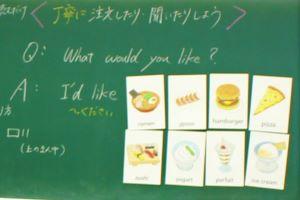 ＜丁寧に注文したり、聞いたりしよう＞
Q: What would you like?
A: I'd like
〜ください
ramen
gyoza
hamburger
pizza
sushi
yogurt
parfait
ice cream